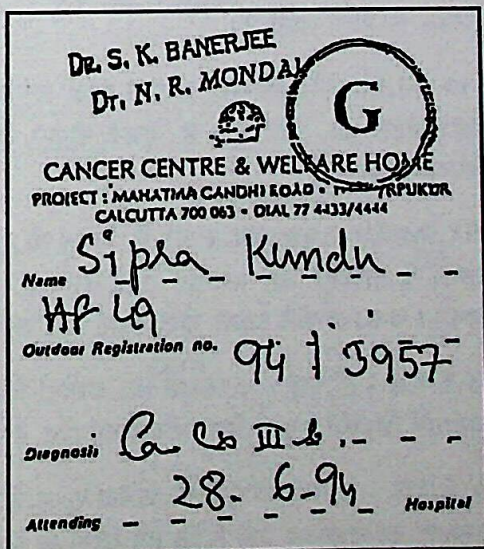 DR. S. K. BANERJEE
Dr. N. R. MONDAL
G
CANCER CENTRE & WELFARE HOME
PROJECT : MAHATMA GANDHI ROAD •
CALCUTTA 700 063 • DIAL 77 4433/4444
Name Sipra Kundu
HF 49
Outdoor Registration no. 94 / 3957
Diagnosis Ca Cx III b
28-6-94
Attending Hospital